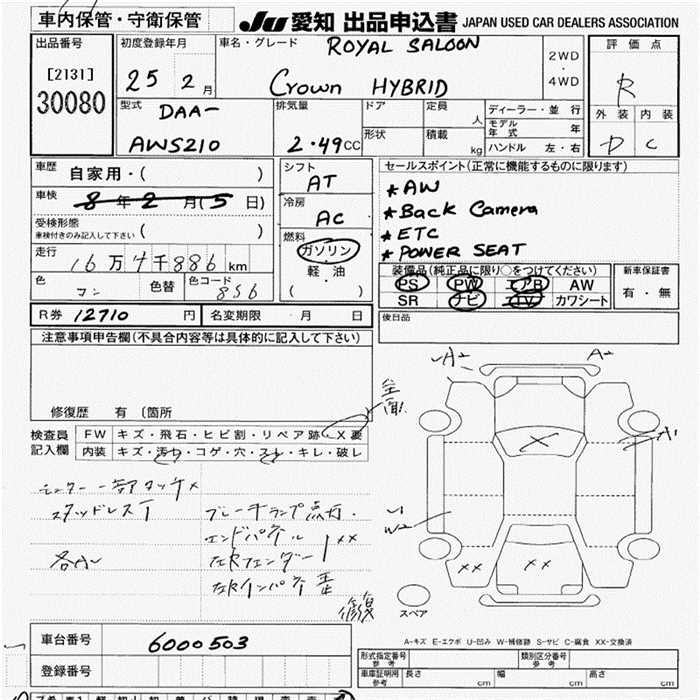 車内保管・守衛保管
JU 愛知 出品申込書 JAPAN USED CAR DEALERS ASSOCIATION
出品番号
[2131]
30080
初度登録年月
25 2月
車名・グレード
ROYAL SALOON
Crown HYBRID
2WD
・
4WD
評価点
R
外装 内装
D C
型式
DAA-
AWS210
排気量
2.49CC
ドア
形状
定員
人
積載
kg
ディーラー・並 行
モデル年式 年
ハンドル 左・右
車歴
自家用・( )
車検
8年2月(5日)
受検形態
車検付きのみ記入して下さい ( )
走行
16万4千886km
色
コン
色替
色コード
8S6
シフト
AT
冷房
AC
燃料
ガソリン
・
軽・油
( )
セールスポイント(正常に機能するものに限ります)
*AW
*Back Camera
*ETC
*POWER SEAT
装備品(純正品に限り○をつけてください)
PS PW エアB AW
SR ナビ TV カワシート
新車保証書
有・無
R券 12710 円
名変期限 ・月 日
後日品
注意事項申告欄(不具合内容等は具体的に記入して下さい)
修復歴 有(箇所
検査員
記入欄
FW キズ・飛石・ヒビ割・リペア跡・X要
内装 キズ・汚れ・コゲ・穴・スレ・キレ・破レ
スタッドレス
ブレーキランプ点灯.
エンドパネル XX
各A
左Rフェンダー
左Rインパネ
修復
A2
A2
A1
W2
X
XX
XX
スペア
A-キズ E-エクボ U-凹み W-補修跡 S-サビ C-腐食 XX-交換済
車台番号
6000503
登録番号
形式指定番号
参考
類別区分番号
参考
車庫証明用
参考
長さ cm 幅 cm 高さ cm